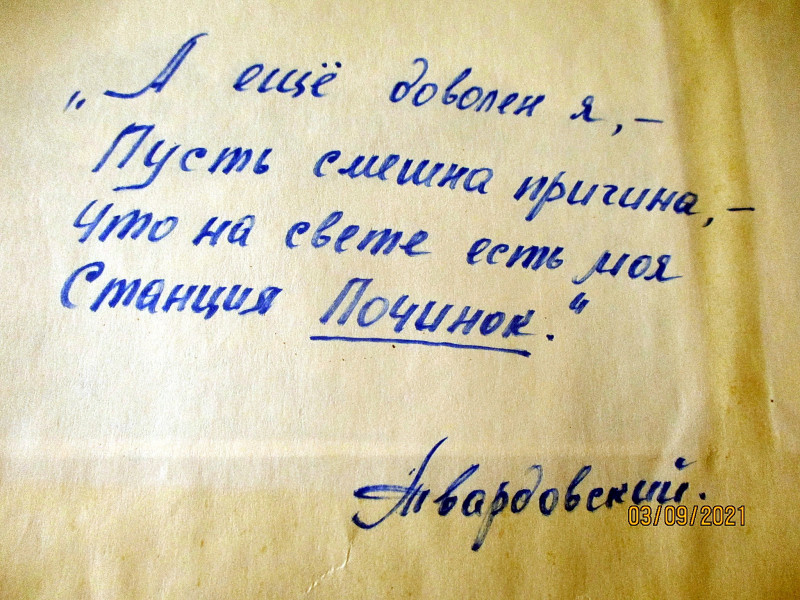 „А ещё доволен я,–
Пусть смешна причина,–
Что на свете есть моя
Станция Починок.“
Твардовский.
03/09/2021